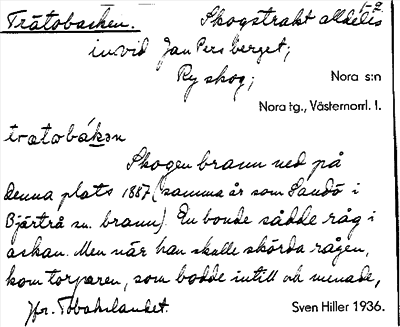 Trätobacken. Skogstrakt alldeles
invid Jan Persberget;
Ry skog; Nora s:n
Nora tg., Västernorrl. l.
tratobákan
Skogen brann ned på
denna plats 1887 (samma år som Sandö i
Bjärtrå sn. brann). En bonde sådde råg i
askan. Men när han skulle skörda rågen,
kom torparen, som bodde intill och menade,
Jfr. Sven Hiller 1936.